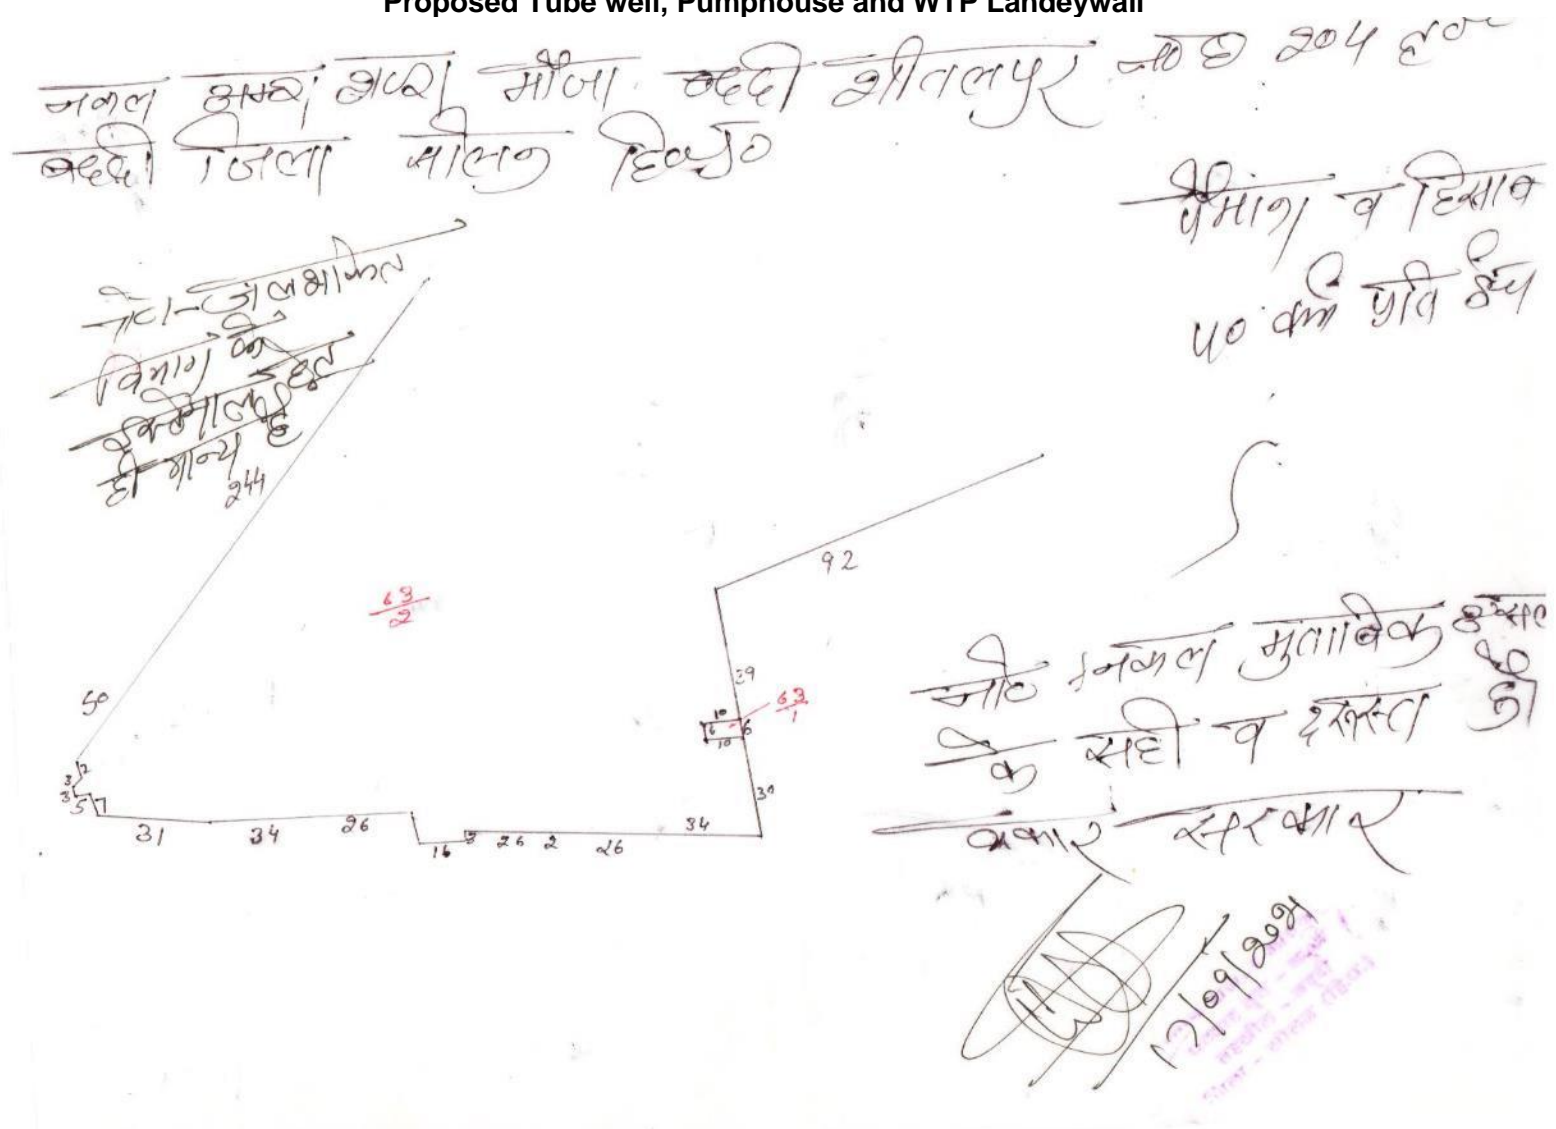 Proposed Tube well, Pumphouse and WTP Landeywall
नकल अक्श शजरा मौजा बद्दी शीतलपुर न० ह० 204 हद०
बद्दी जिला सोलन हि०प्र०
पैमाना व हिसाब
40 कर्म प्रति इंच
नोट-जलशक्ति
विभाग के
इस्तेमाल हेतु
ही मान्य है
244
92
63/2
39
50
63/1
10
6
6
10
2
3
3
5
7
30
31
34
26
16
3
26
2
26
34
नोट नकल मुताबिक असल
के सही व दरुस्त है
बकार सरकार
17/09/2021